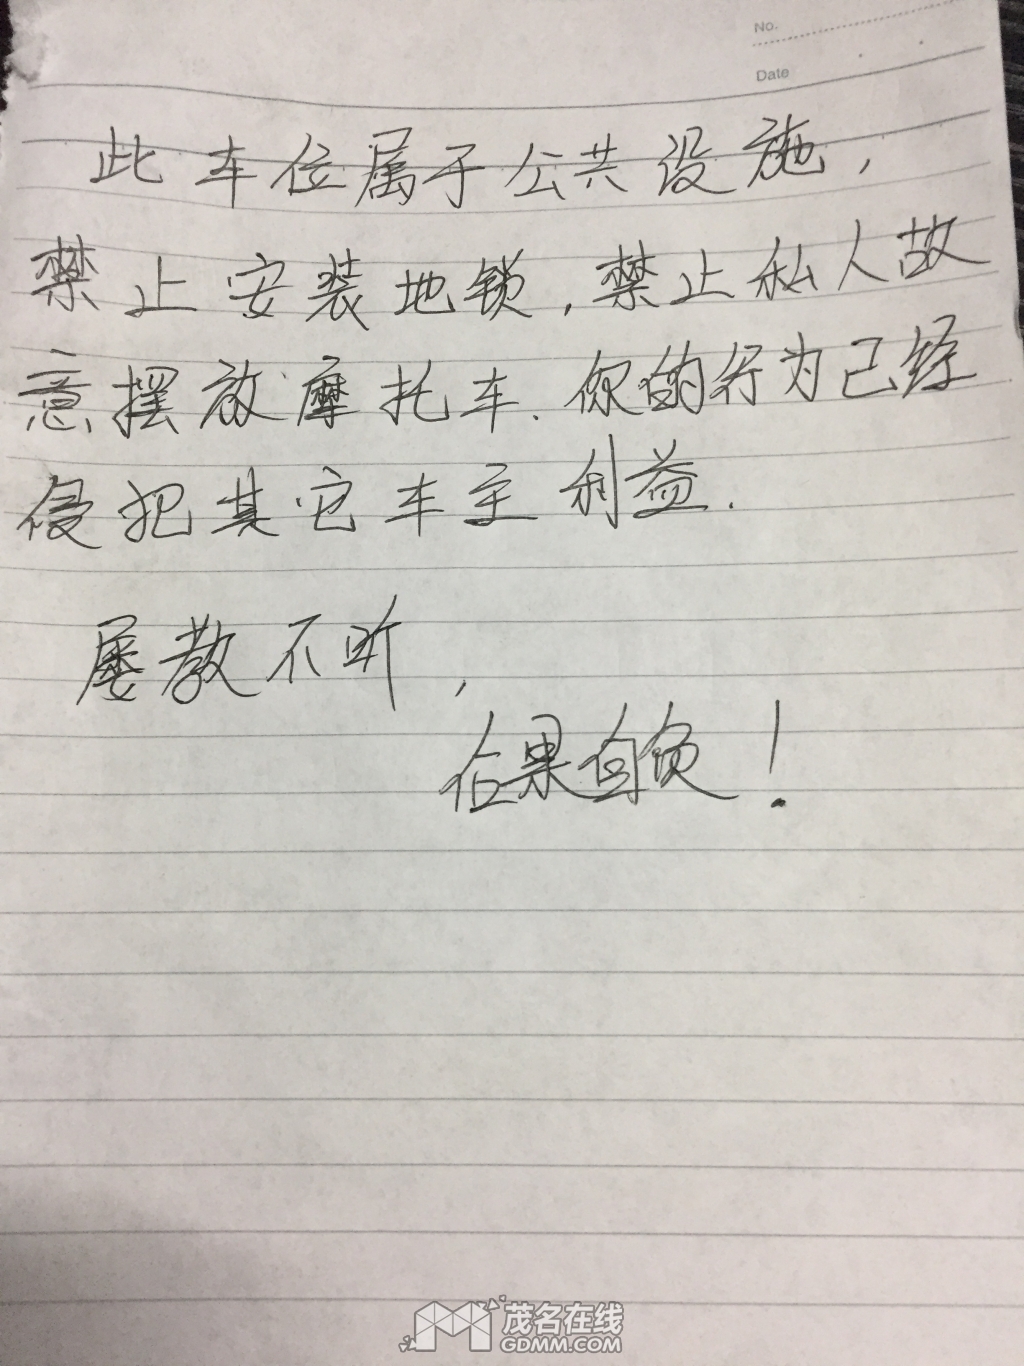 No.
Date
此车位属于公共设施，
禁止安装地锁，禁止私人故
意摆放摩托车．你的行为已经
侵犯其它车主利益．
屡教不听，
后果自负！
茂名在线
GDMM.COM